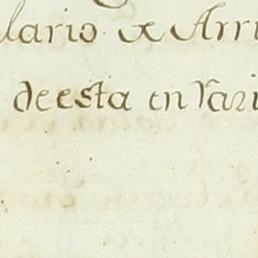 lario de Arri
de esta en Vari